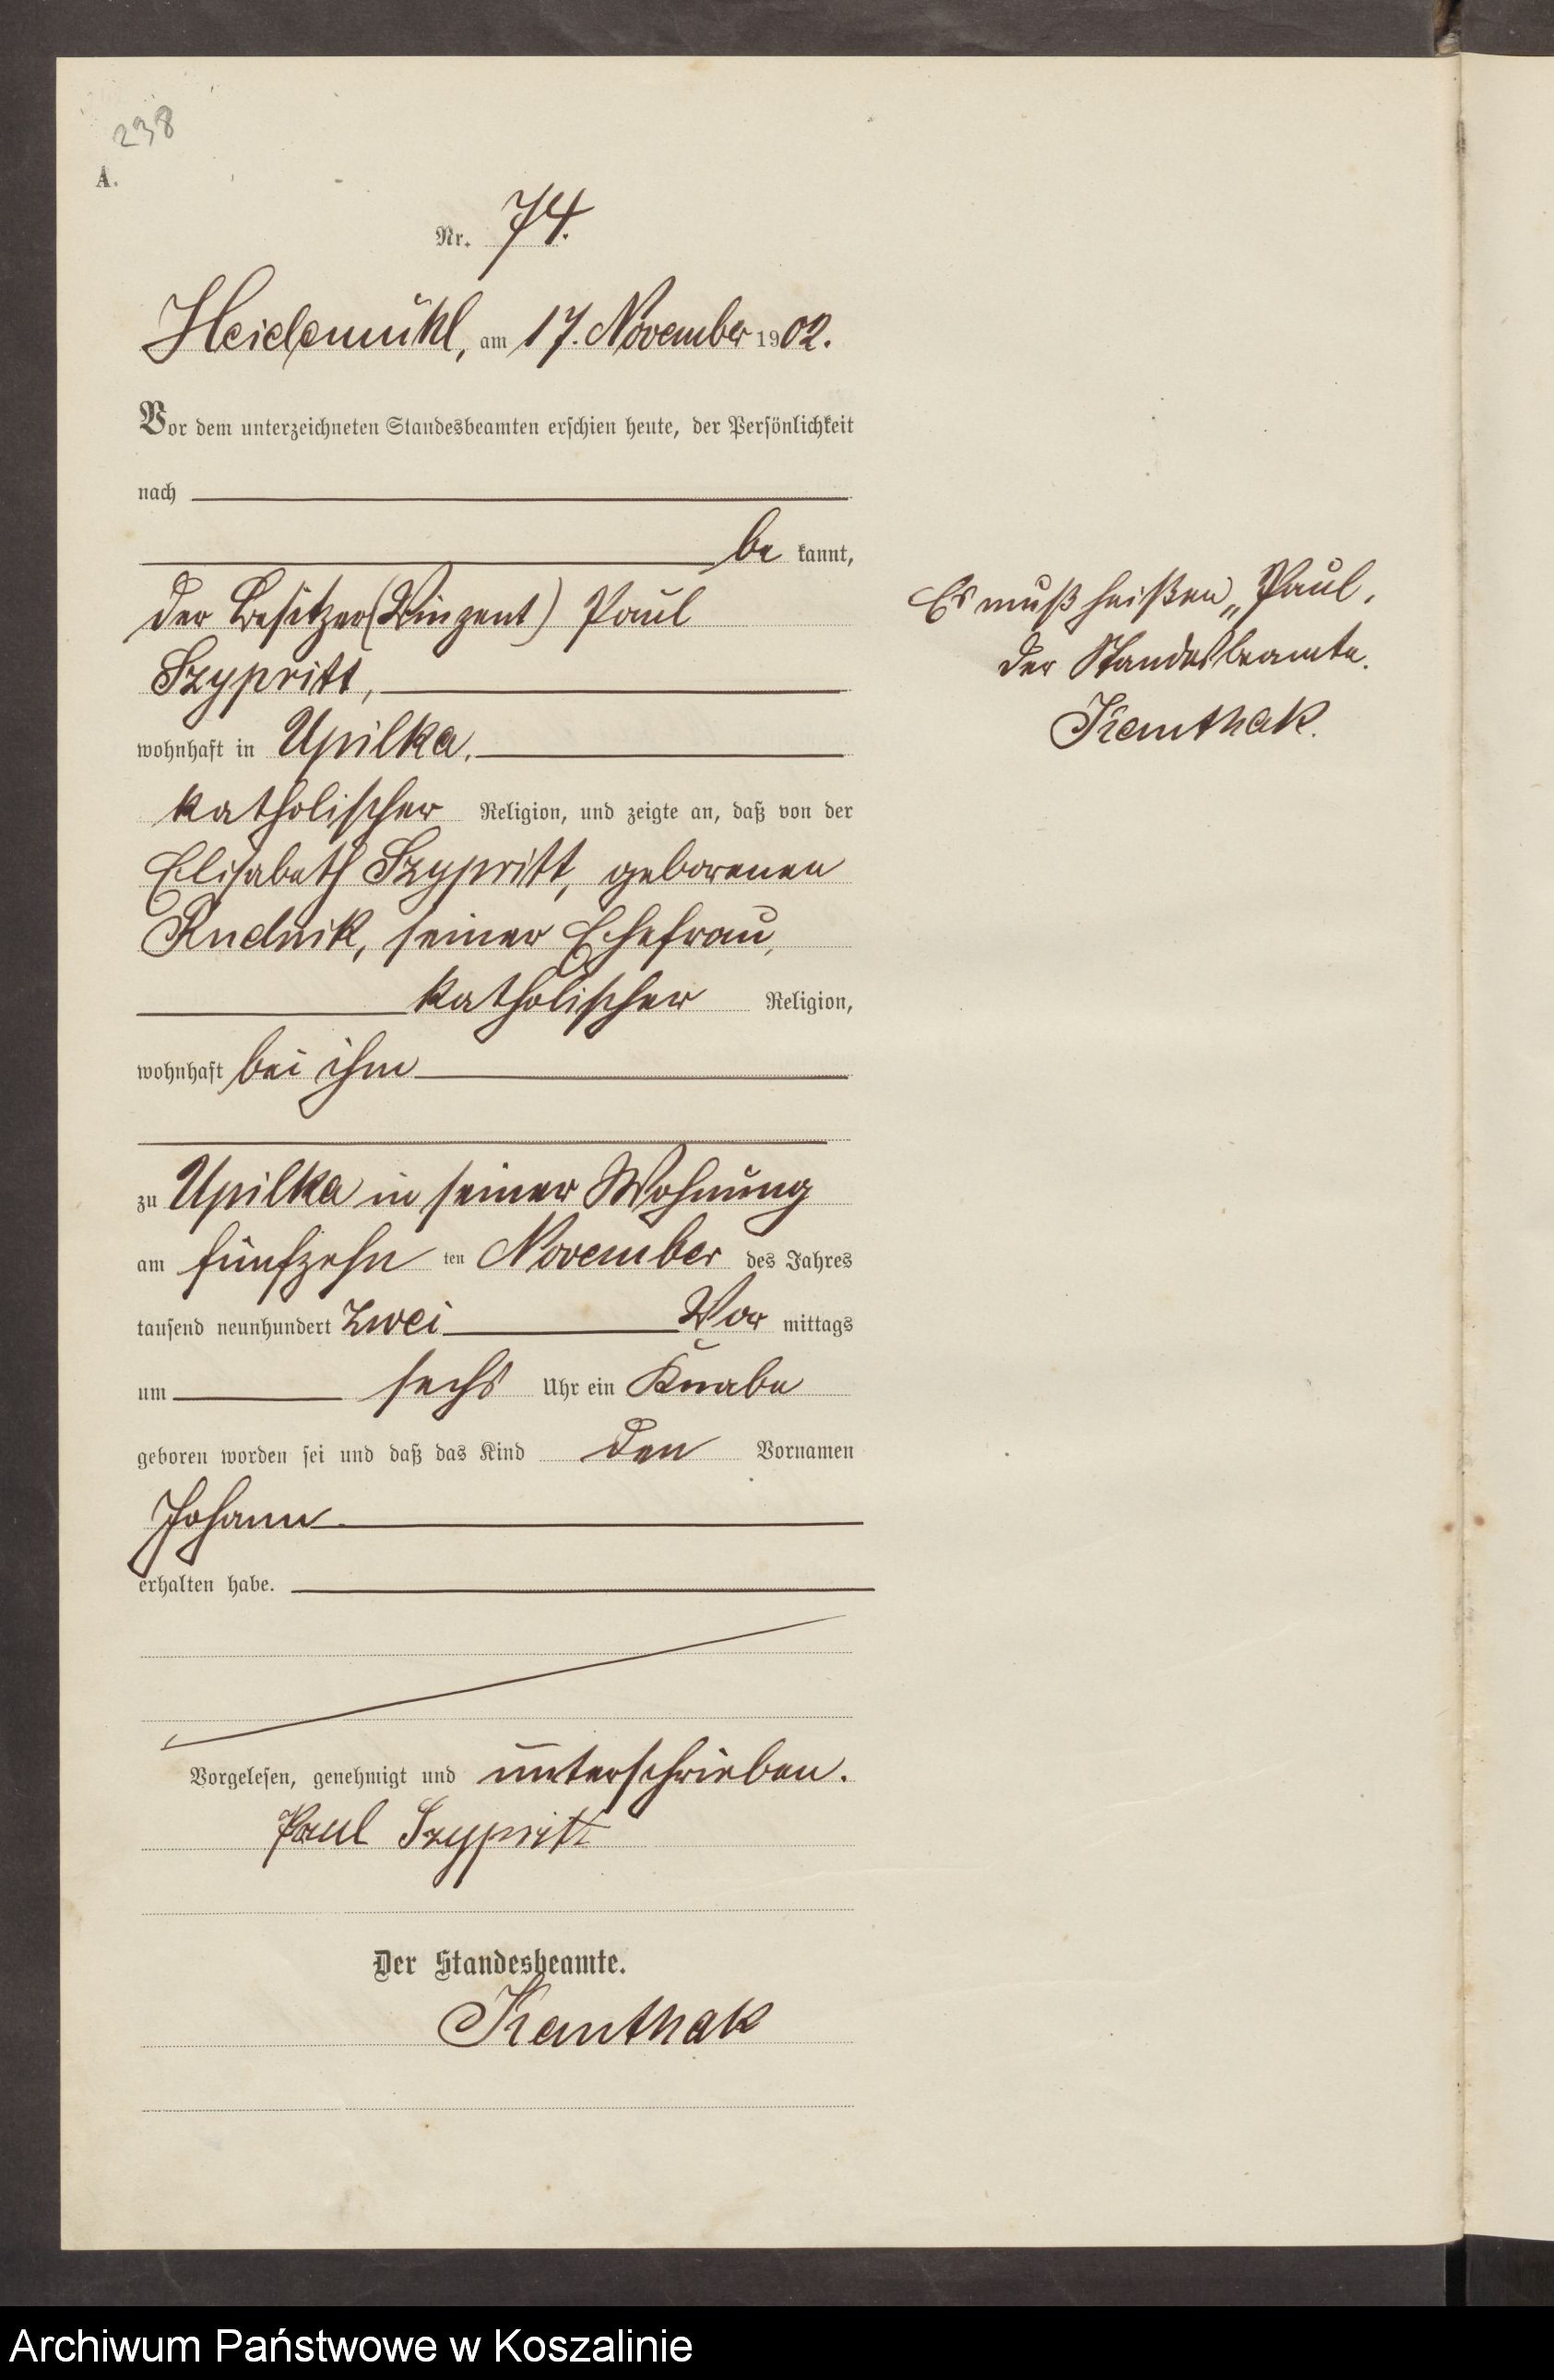 238
A.
Nr. 74.
Heidemühl, am 17. November 1902.
Vor dem unterzeichneten Standesbeamten erschien heute, der Persönlichkeit
nach
be kannt,
der Besitzer (Vinzent) Paul
Szypritt,
wohnhaft in Upilka,
katholischer Religion, und zeigte an, daß von der
Elisabeth Szypritt, geborenen
Rudnik, seiner Ehefrau,
katholischer Religion,
wohnhaft bei ihm
zu Upilka in seiner Wohnung
am fünfzehn ten November des Jahres
tausend neunhundert zwei Vor mittags
um sechs Uhr ein Knabe
geboren worden sei und daß das Kind den Vornamen
Johann
erhalten habe.
Vorgelesen, genehmigt und unterschrieben.
Paul Szypritt
Der Standesbeamte.
Kanthak
Es muß heißen „Paul,
Der Standesbeamte.
Kanthak.
Archiwum Państwowe w Koszalinie